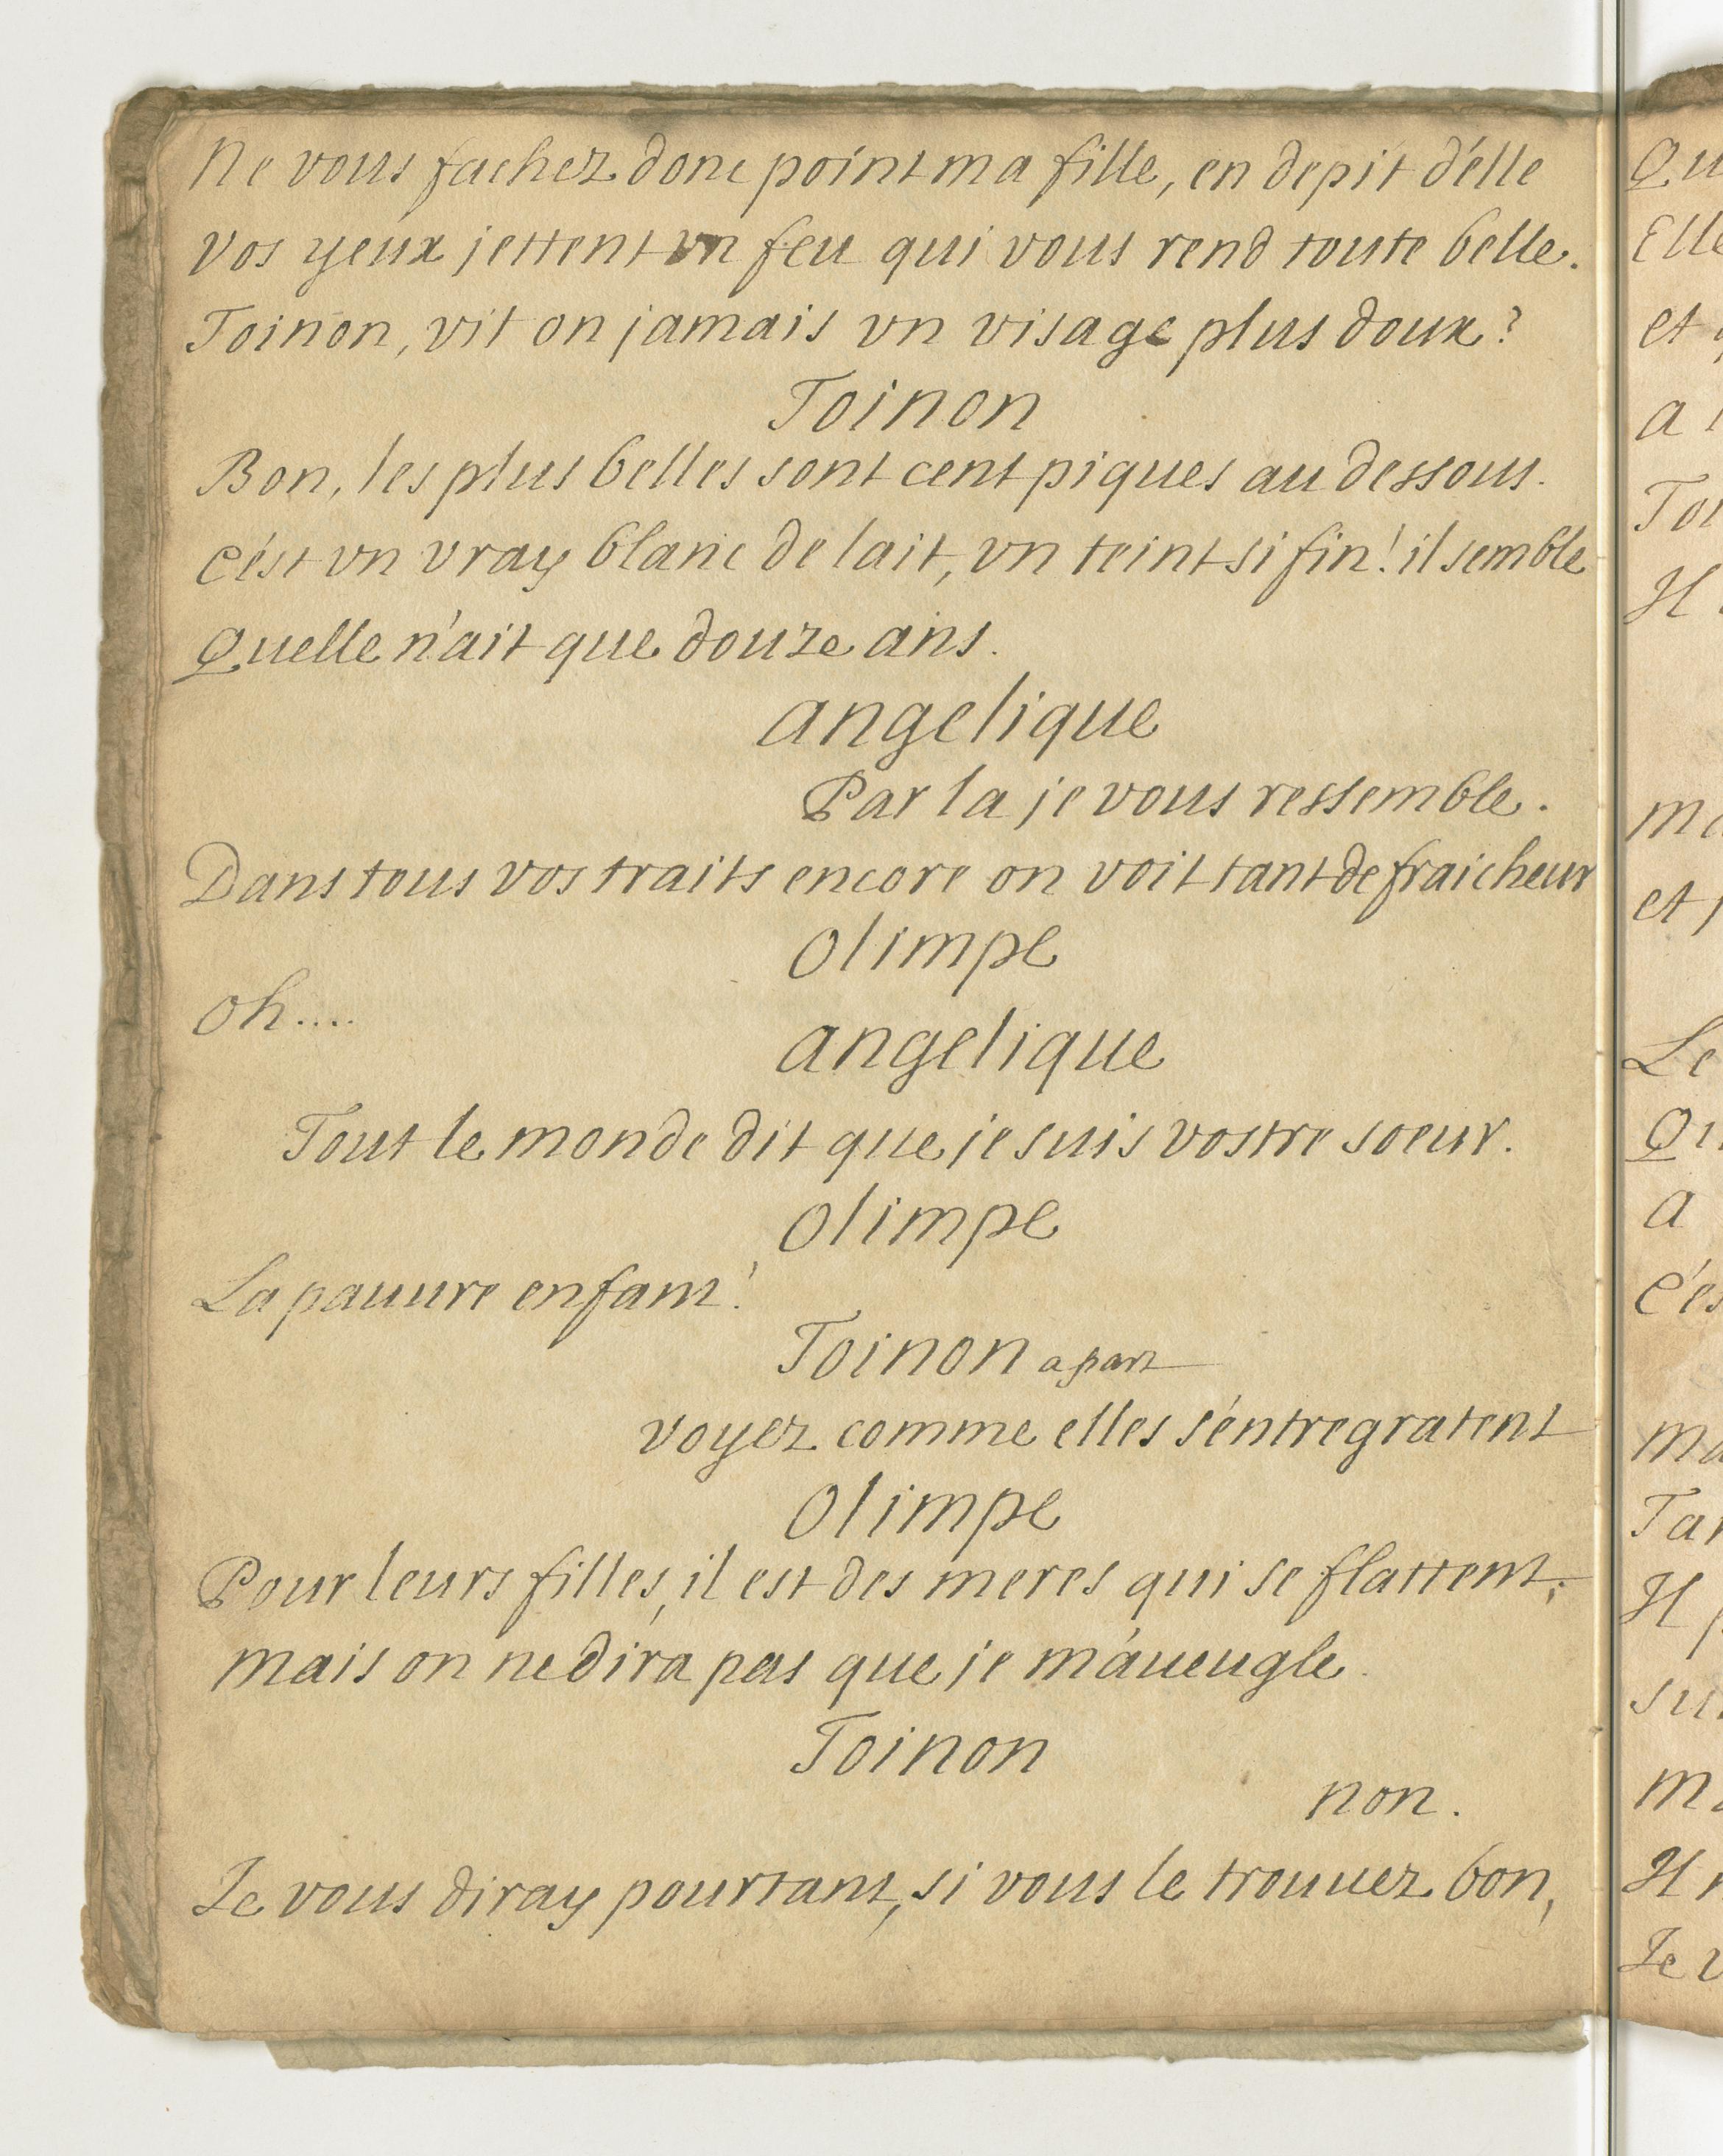 Ne vous fachez donc point ma fille, en depit d'élle
vos yeux jettent un feu qui vous rend toute belle.
Toinon, vit on jamais vn visage plus doux?
Toinon
Bon, les plus belles sont cent piques au dessous.
c'ést vn vray blanc de lait, vn teint si fin! il semble
Quelle n'ait que douze ans.
angelique
Par la je vous ressemble.
Dans tous vos traits encore on voit tant de fraicheur
Olimpe
Oh....
angelique
Tout le monde dit que je suis vostre soeur.
Olimpe
La pauure enfant!
Toinon a part
voyez comme elles s'éntregratent
Olimpe
Pour leurs filles, il est des meres qui se flattent;
mais on ne dira pas que je m'áueugle.
Toinon
non.
Je vous diray pourtant, si vous le trouuez bon,
Qu
Elle
et
a
Toi
Il
et
Le
Qu
a
C'és
Tan
Il
su
Il
Je v